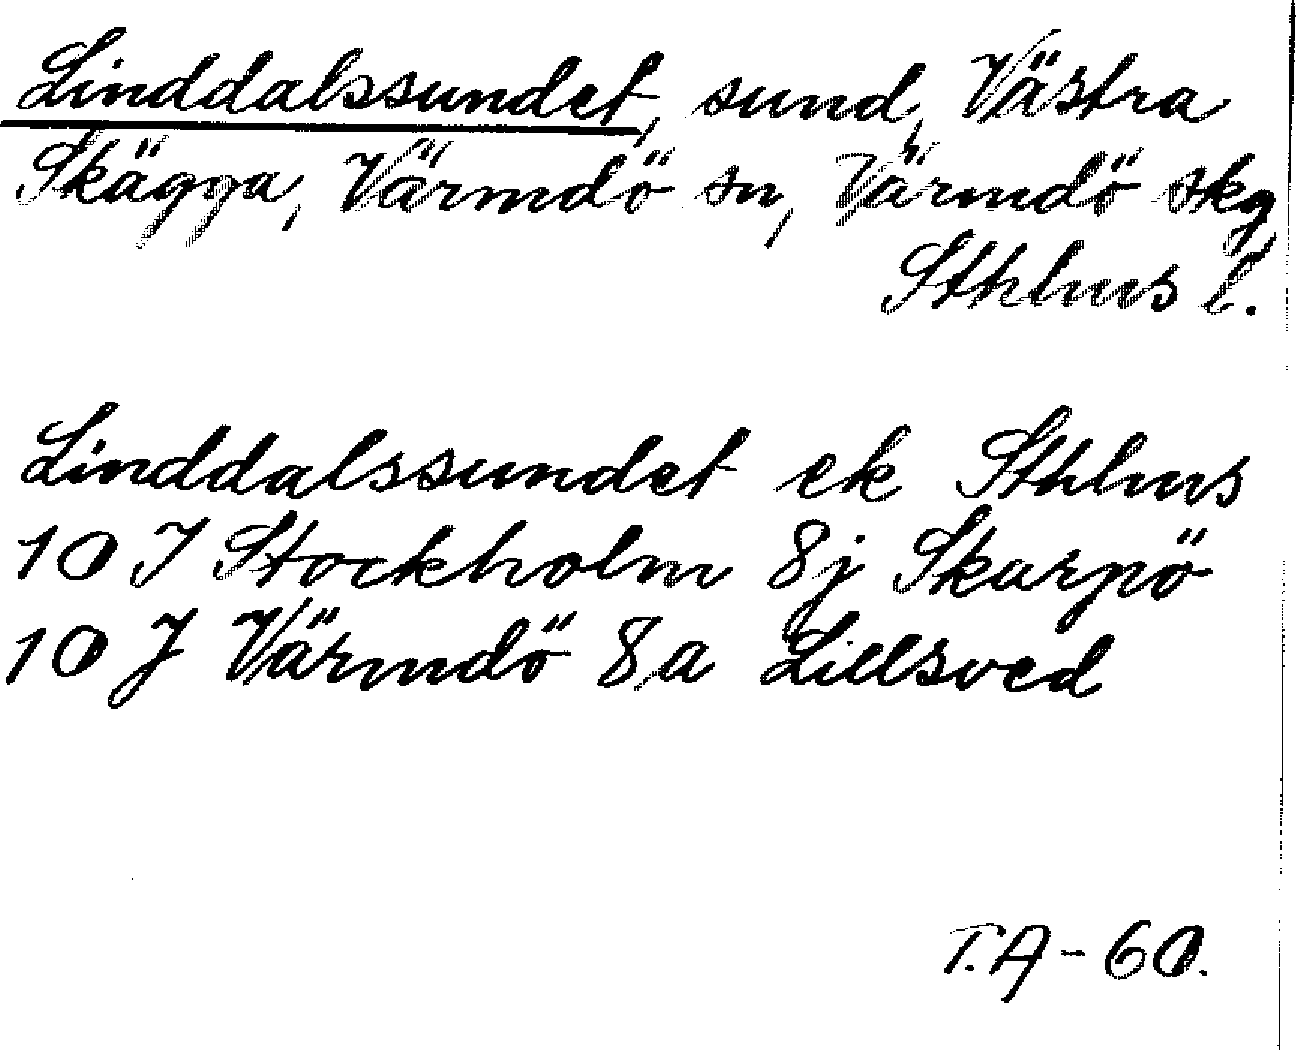 Linddalssundet, sund, Västra
Skägga, Värmdö sn, Värmdö skg,
Sthlms l.
Linddalssundet ek Sthlms
10 I Stockholm 8j Skarpö
10 J Värmdö 8a Lillsved
T.A-60.